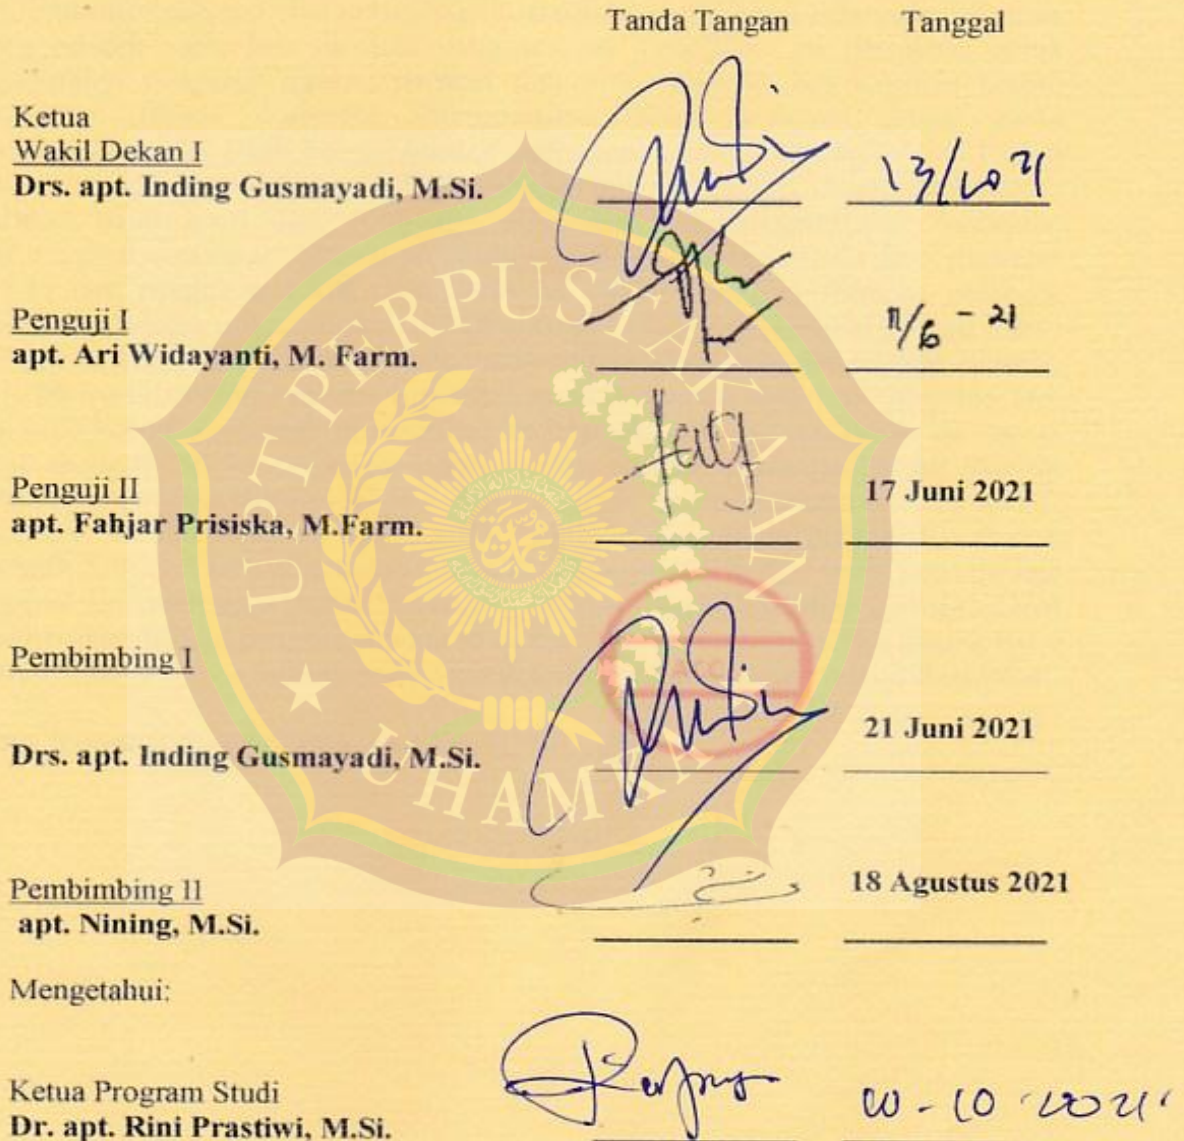 Tanda Tangan Tanggal
Ketua
Wakil Dekan I
Drs. apt. Inding Gusmayadi, M.Si.
Penguji I
apt. Ari Widayanti, M. Farm.
11/6 - 21
Penguji II
apt. Fahjar Prisiska, M.Farm.
17 Juni 2021
Pembimbing I
Drs. apt. Inding Gusmayadi, M.Si.
21 Juni 2021
Pembimbing II
apt. Nining, M.Si.
18 Agustus 2021
Mengetahui:
Ketua Program Studi
Dr. apt. Rini Prastiwi, M.Si.
UPT PERPUSTAKAAN
UHAMKA